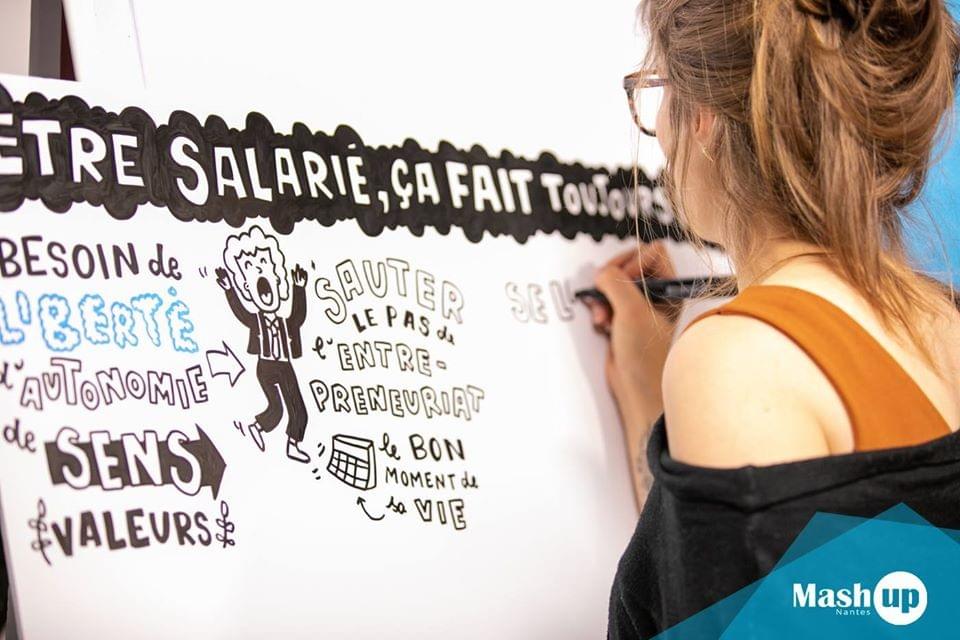 ETRE SALARIÉ, ÇA FAIT TOUJOURS
BESOIN de
LIBERTÉ
d'AUTONOMIE
de SENS
VALEURS
SAUTER
LE PAS de
l'ENTRE-
PRENEURIAT
le BON
MOMENT de
sa VIE
SE L
Mash up
Nantes